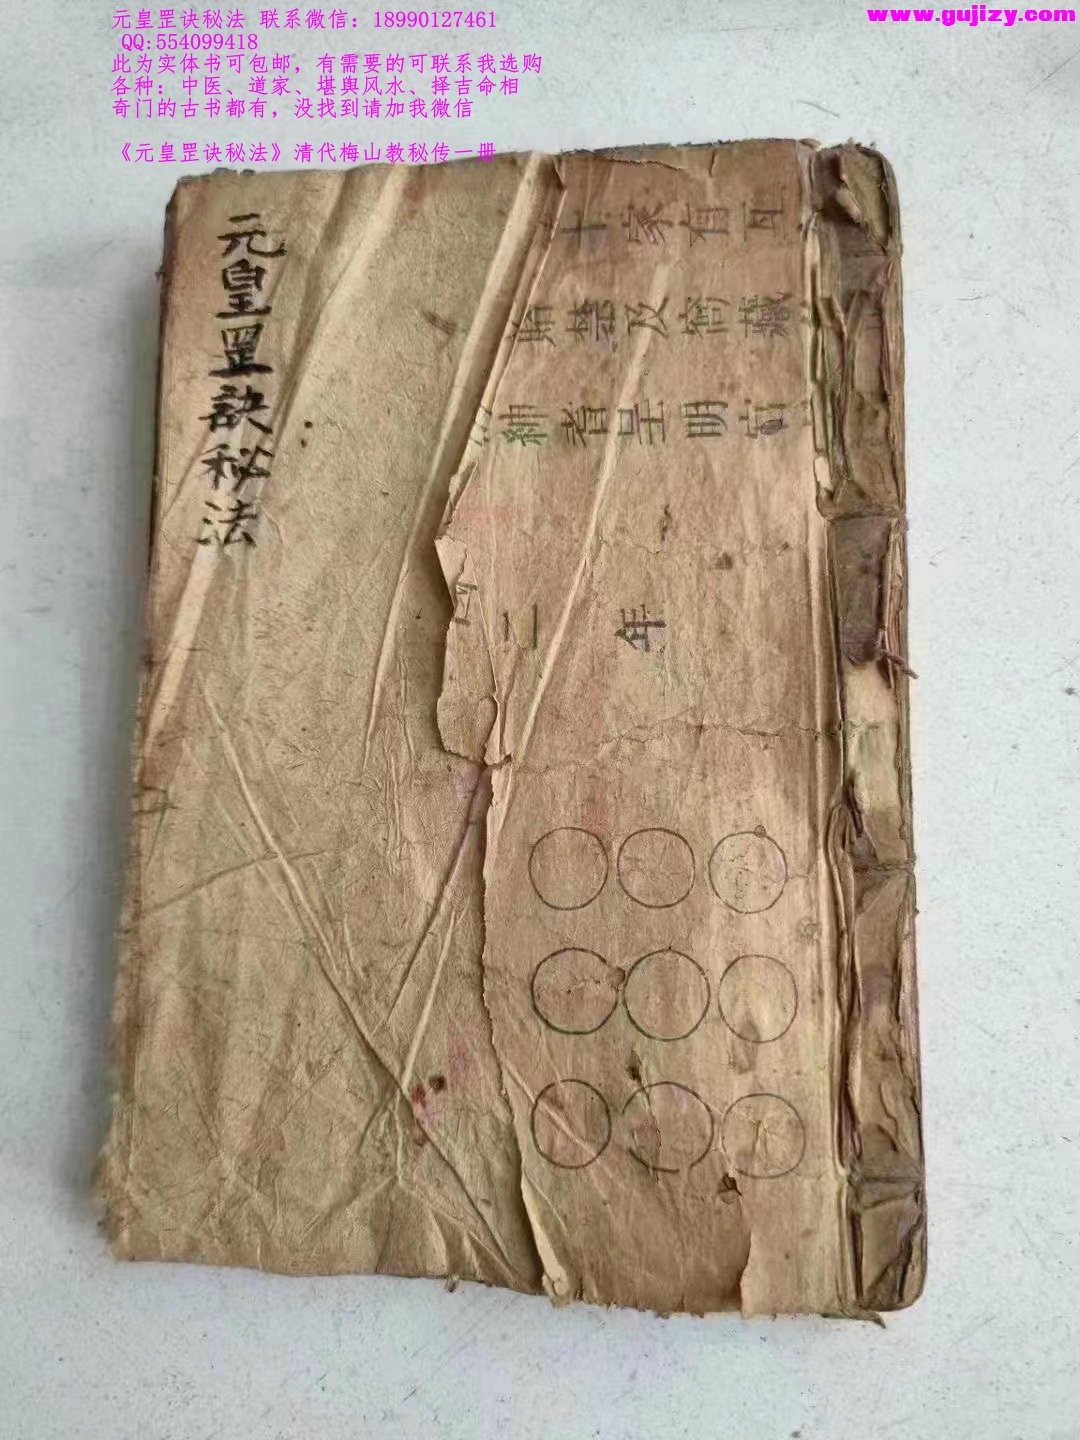 元皇罡诀秘法 联系微信：18990127461
QQ:554099418
此为实体书可包邮，有需要的可联系我选购
各种：中医、道家、堪舆风水、择吉命相
奇门的古书都有，没找到请加我微信
《元皇罡诀秘法》清代梅山教秘传一册
www.gujizy.com
元皇罡訣秘法
十家
及窩藏
者呈明
二
年